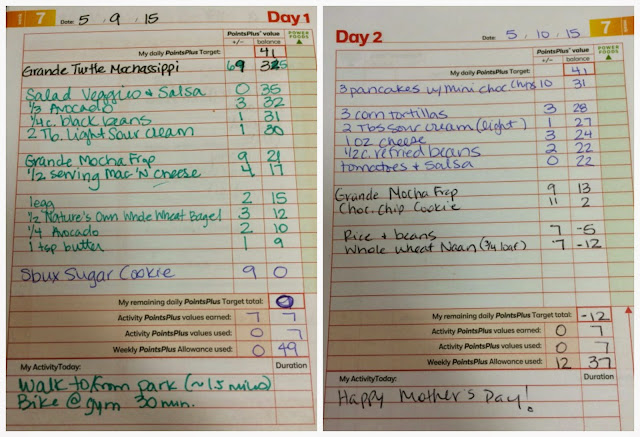 7 Date: 5 . 9 . 15 Day 1
PointsPlus® value POWER FOODS
+/- balance
My daily PointsPlus Target: 41
Grande Turtle Mochassippi 9 35
Salad Veggies & Salsa 0 35
1/3 Avocado 3 32
1/4 c. black beans 1 31
2 Tb. Light Sour Cream 1 30
Grande Mocha Frap 9 21
1/2 serving Mac 'N' Cheese 4 17
1 egg 2 15
1/2 Nature's Own Whole Wheat Bagel 3 12
1/4 Avocado 2 10
1 tsp butter 1 9
Sbux Sugar Cookie 9 0
My remaining daily PointsPlus Target total: 0
Activity PointsPlus values earned: 7 7
Activity PointsPlus values used: 0 7
Weekly PointsPlus Allowance used: 0 49
My Activity Today: Duration
Walk to/from park (~1.5 miles)
Bike @ gym 30 min.
Day 2 Date: 5 . 10 . 15 7
PointsPlus® value POWER FOODS
+/- balance
My daily PointsPlus Target: 41
3 pancakes w/ mini choc chips 10 31
3 corn tortillas 3 28
2 Tbs sour cream (light) 1 27
1 oz cheese 3 24
1/2 c. refried beans 2 22
tomatoes + salsa 0 22
Grande Mocha Frap 9 13
Choc. Chip Cookie 11 2
Rice + beans 7 -5
Whole Wheat Naan (3/4 loaf) 7 -12
My remaining daily PointsPlus Target total: -12
Activity PointsPlus values earned: 0 7
Activity PointsPlus values used: 0 7
Weekly PointsPlus Allowance used: 12 37
My Activity Today: Duration
Happy Mother's Day!